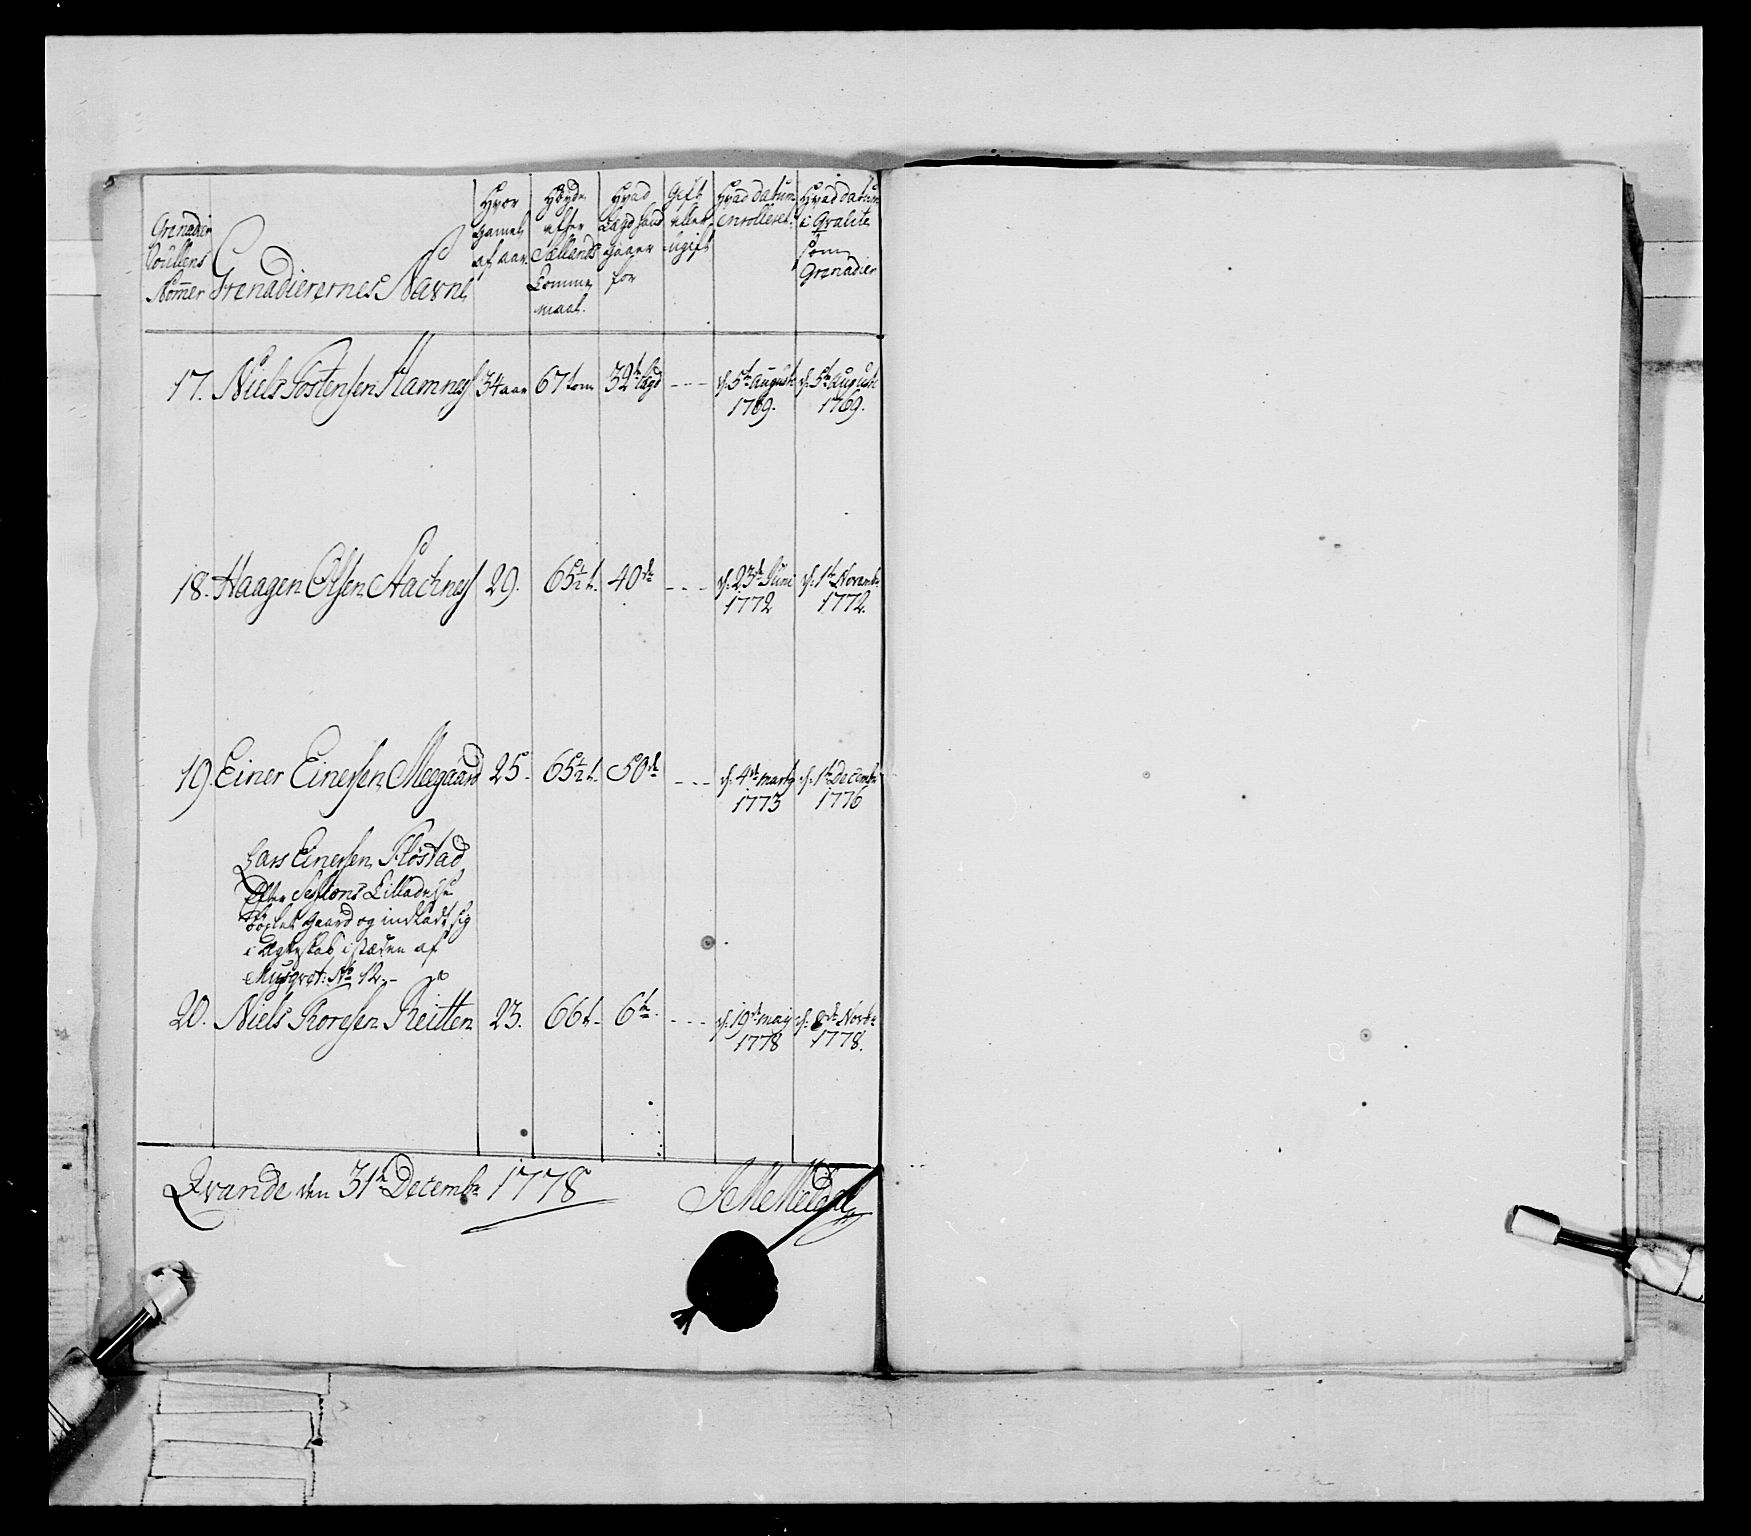 Grenadier
Roullens
Nomer
Grenadierernes Navne
Hvor
gamel
af aar
Høyde
efter
Sællands
Tomme
maal.
Hvad
Lægd hand
staaer
for
Gift
eller
ugift
Hvad datum
enrolleret.
Hvad datum
i Qvalite
som
Grenadier
17. Niels Tostensen Hamnes 34 aar 67 tom 32te lægd --- d. 5te august 1769. d. 5te august 1769.
18. Haagen Olsen 29. 65½ t. 40de --- d. 23de Juni 1772 d. 1te Novembr 1772.
19. Einer Einersen Meegaard 25. 65½ t. 50de --- d. 4de marty 1773 d. 1te Decembr 1776
Lars Einersen Flostad
efter Sessions Tilladelse
gaard og indladt sig
i Ægteskab, i stæden af
Musqvet: No 12.-
20. Niels Roresen Reitten 23. 66 t. 6te --- d. 19de may 1778 d. 8de Novbr 1778.
Qvande den 31te Decembr 1778